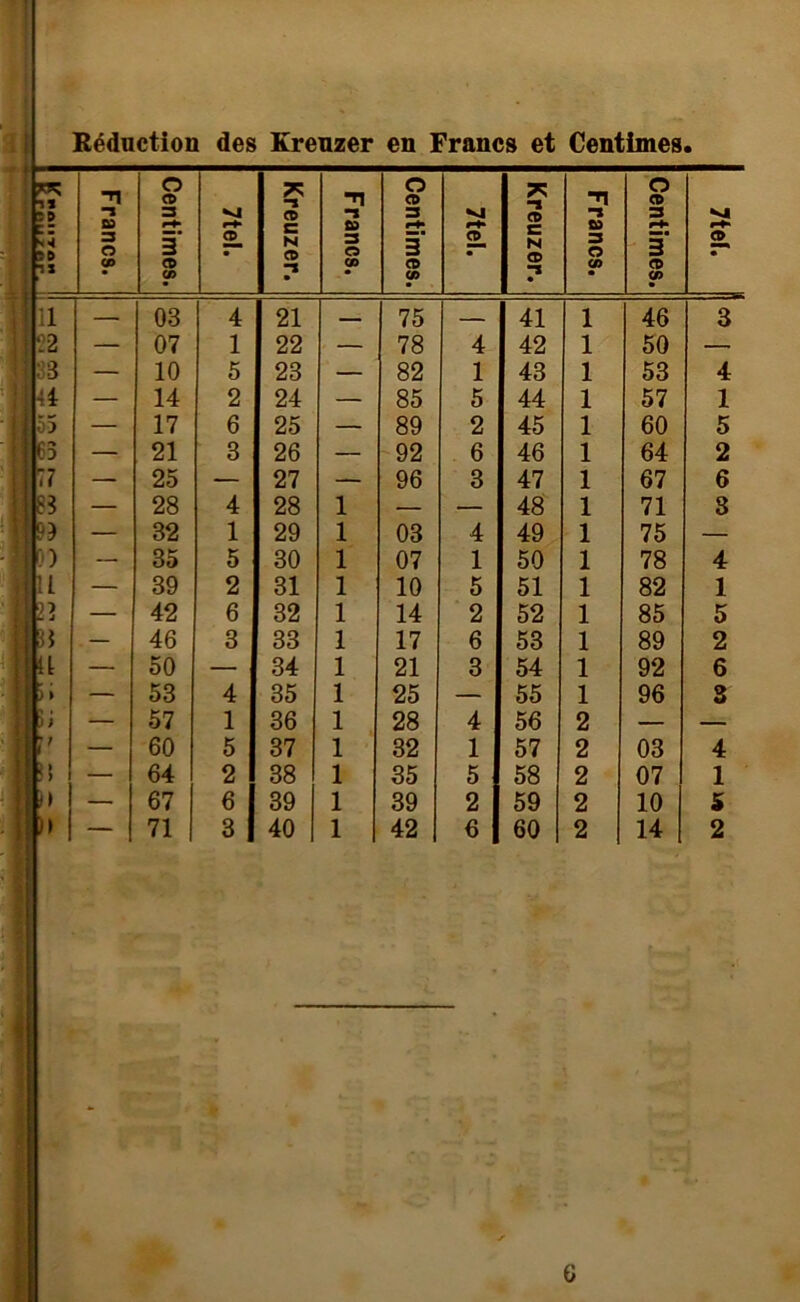 Réduction des Kreuzer en Francs et Centimes.
Francs. Centimes. 7tel. Kreuzer. Francs. Centimes. 7tel. Kreuzer. Francs. Centimes. 7tel.
— 03 4 21 — 75 — 41 1 46 3
— 07 1 22 — 78 4 42 1 50 —
— 10 5 23 — 82 1 43 1 53 4
— 14 2 24 — 85 5 44 1 57 1
— 17 6 25 — 89 2 45 1 60 5
— 21 3 26 — 92 6 46 1 64 2
— 25 — 27 — 96 3 47 1 67 6
— 28 4 28 1 — — 48 1 71 3
— 32 1 29 1 03 4 49 1 75 —
— 35 5 30 1 07 1 50 1 78 4
— 39 2 31 1 10 5 51 1 82 1
— 42 6 32 1 14 2 52 1 85 5
— 46 3 33 1 17 6 53 1 89 2
— 50 — 34 1 21 3 54 1 92 6
— 53 4 35 1 25 — 55 1 96 3
— 57 1 36 1 28 4 56 2 — —
— 60 5 37 1 32 1 57 2 03 4
— 64 2 38 1 35 5 58 2 07 1
— 67 6 39 1 39 2 59 2 10 5
— 71 3 40 1 42 6 60 2 14 2
6